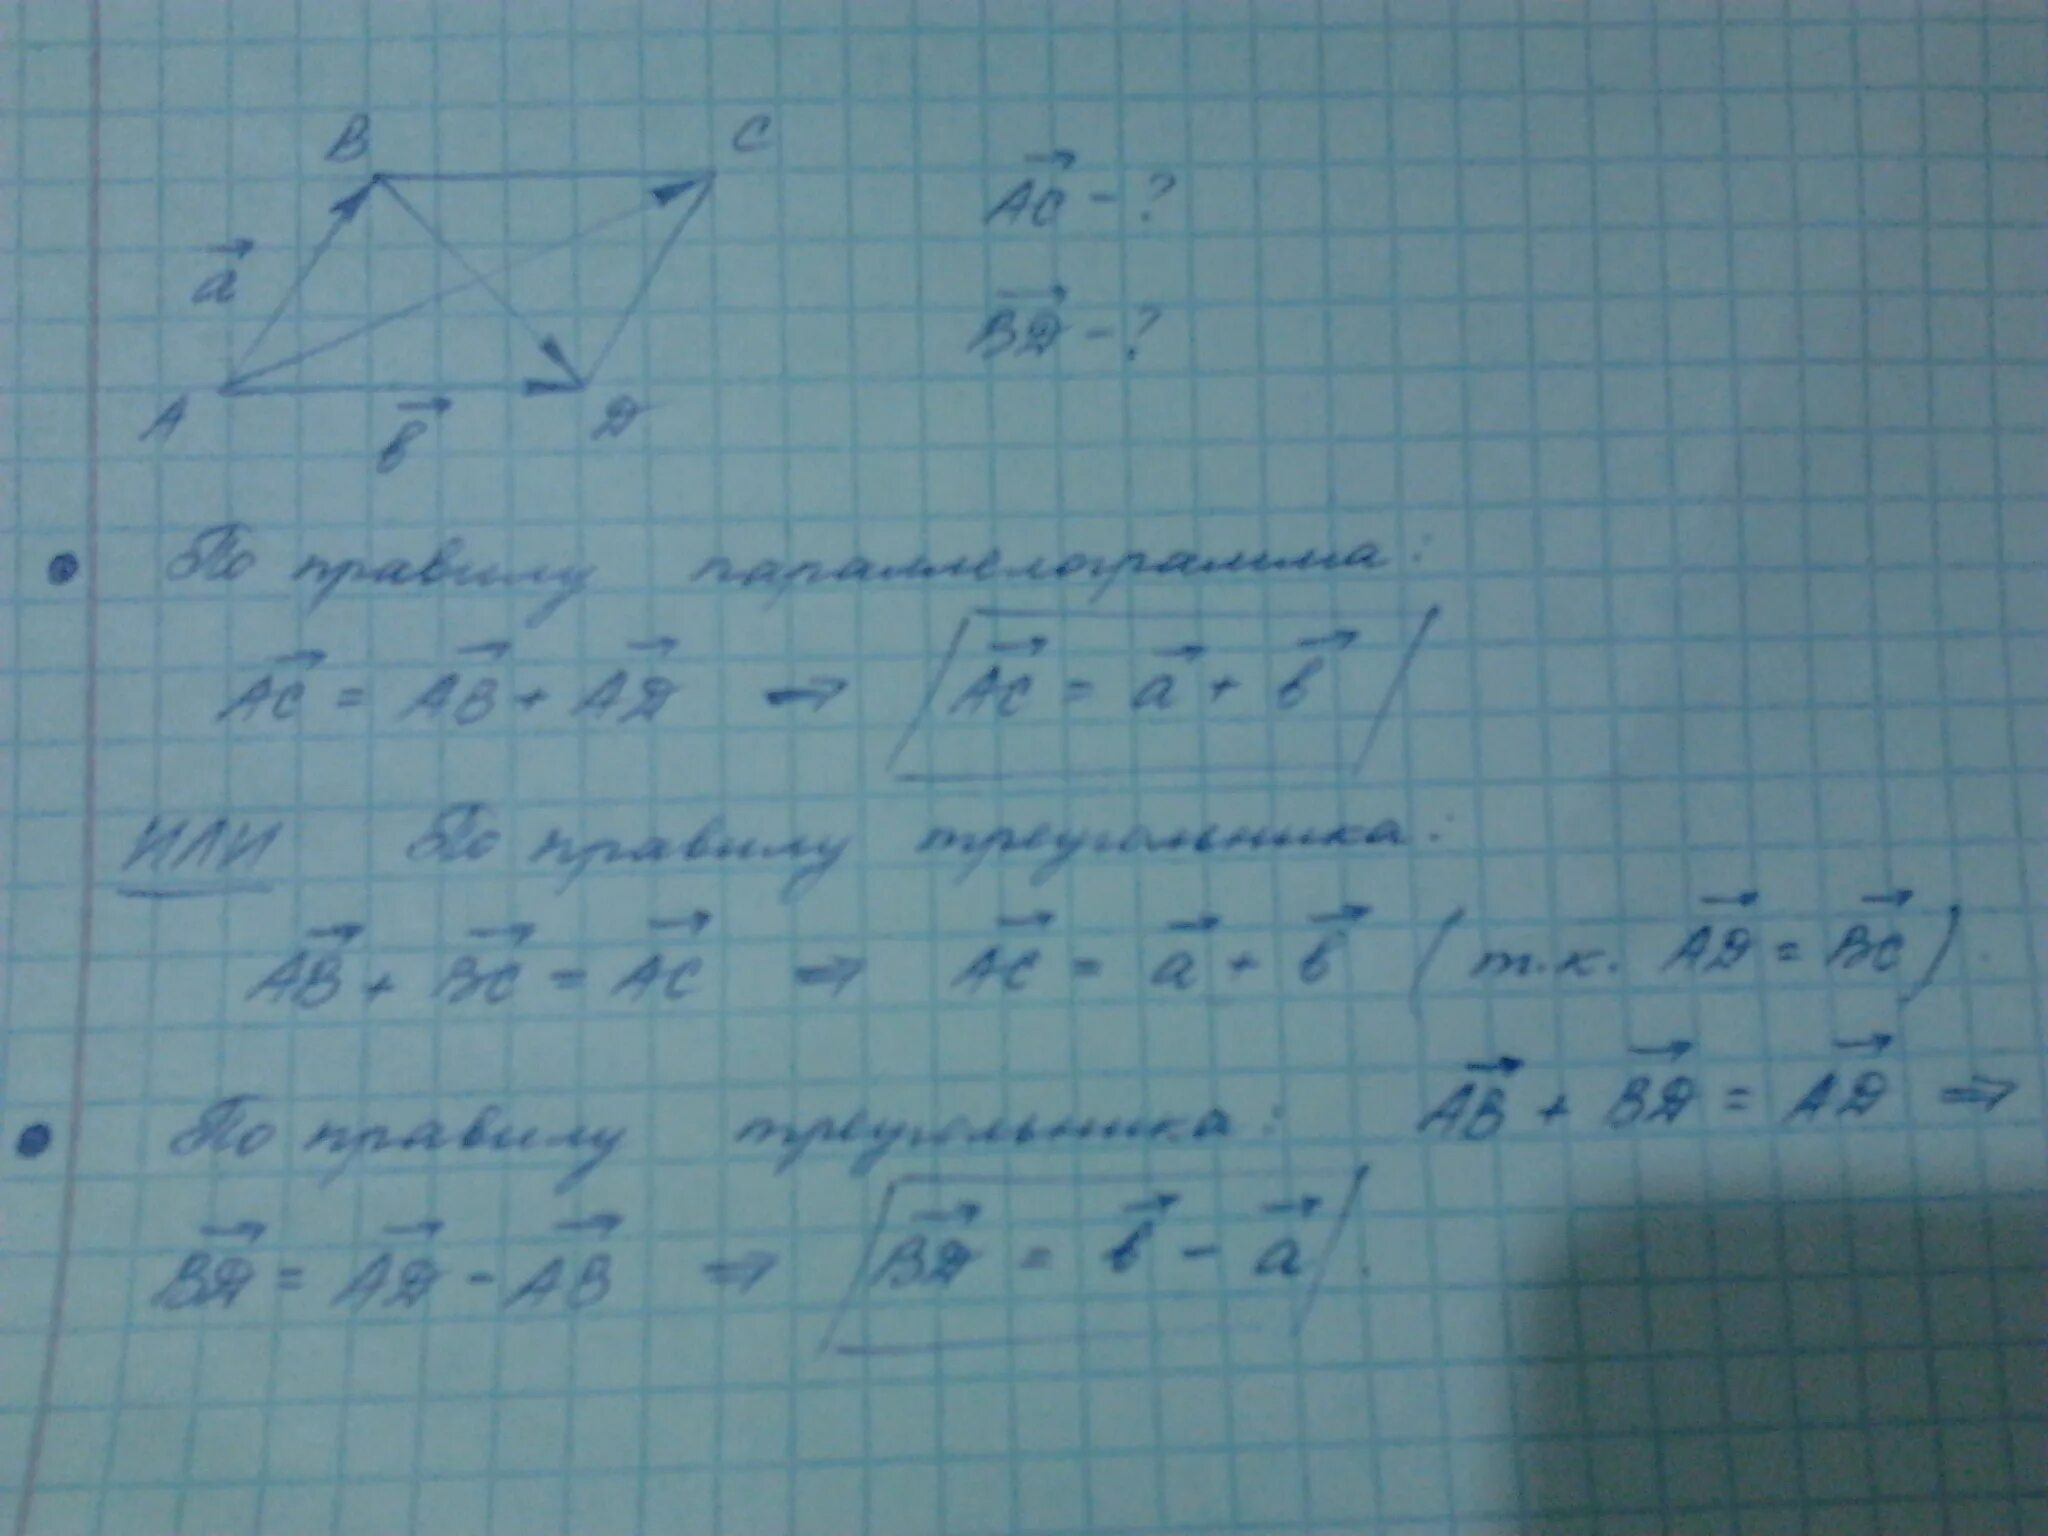 B C
a⃗
A b⃗ D
A͞C⃗ - ?
B͞D⃗ - ?
По правилу параллелограмма:
AC⃗ = AB⃗ + AD⃗ ⇒ AC⃗ = a⃗ + b⃗
ИЛИ По правилу треугольника:
AB⃗ + BC⃗ = AC⃗ ⇒ AC⃗ = a⃗ + b⃗ (т.к. AD⃗ = BC⃗).
По правилу треугольника: AB⃗ + BD⃗ = AD⃗ ⇒
BD⃗ = AD⃗ - AB⃗ ⇒ BD⃗ = b⃗ - a⃗.